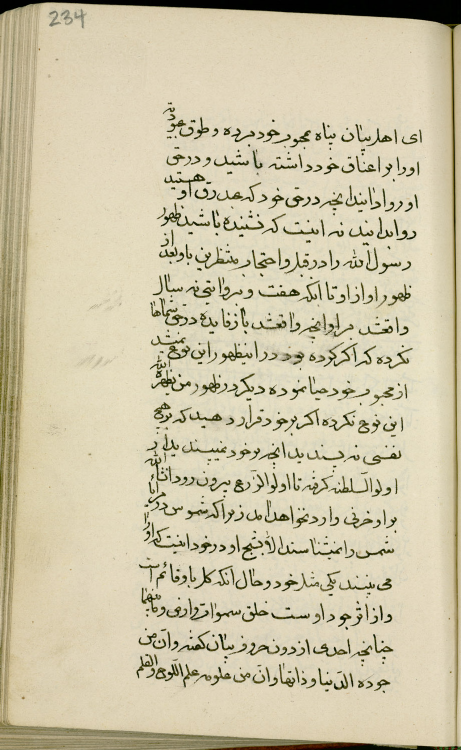 234
ای اهل بیان پناه بمحبوب خود برده و طوق عبودیة
او را بر اعناق خود داشته باشید و در حق
او روا دانید آنچه در حق خود که عبد رق او هستید
روا میدانید نه اینست که نشنیده باشید ظهور
رسول الله را در قبل و احتجاب منتظرین باو بعد از
ظهور او از او تا آنکه هفت و بروایتی نه سال
واقع شد بر او آنچه واقع شد باز فایده در حق شماها
نکرده که اگر کرده بود در این ظهور این نوع نمیشد
از محبوب خود حیا نموده دیگر در ظهور من یظهره الله
این نوع نکرده اگر بر خود قرار دهید که بر هیچ
نفسی نه پسندید آنچه بر خود نمیپسندید از
اولو السلطنه گرفته تا اولو الزرع بیرون رود انشاء الله
بر او حزنی وارد نخواهد آمد زیرا که شموس در مرایا
شمس را نمیشناسند الا بتجلی او در خود اینست که او را
می بینند یکی مثل خود و حال آنکه کل باو قائم است
و از اثر جود اوست خلق سموات و ارض و ما بینهما
چنانچه احدی از دون حروف بیان کفته وان من
جوده الدنیا و ذاتها وان من علومه علم اللوح والقلم